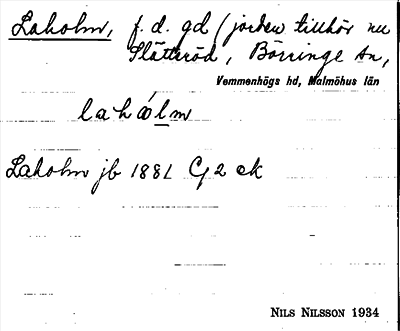 Laholm, f.d. gd (jorden tillhör nu
Slätteröd, Börringe sn,
Vemmenhögs hd, Malmöhus län
Laholm jb 1881 G2 ek
NILS NILSSON 1934